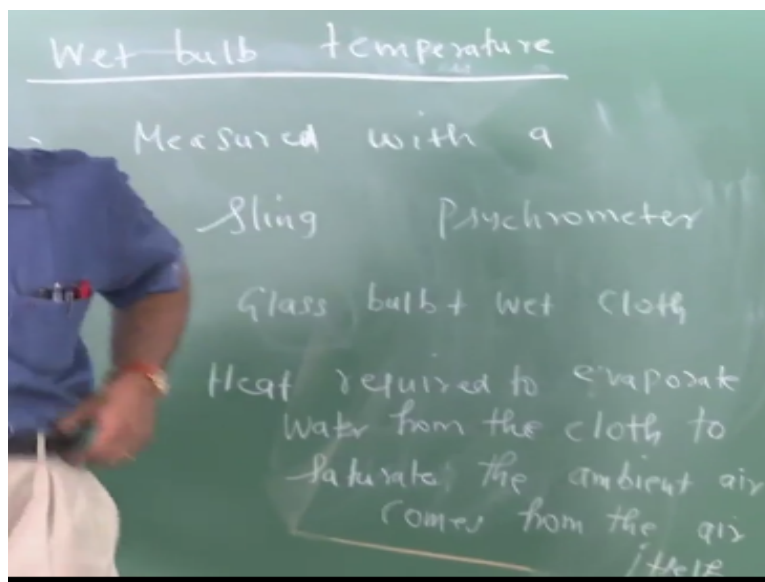 Wet bulb temperature
Measured with a
Sling Psychrometer
Glass bulb + wet cloth
Heat required to evaporate
water from the cloth to
saturate the ambient air
comes from the air
itself